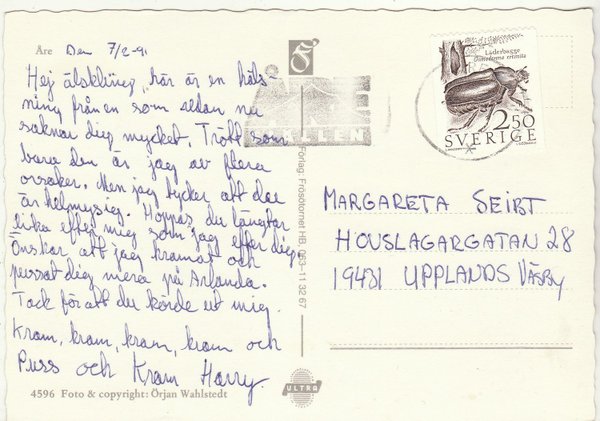 Åre Den 7/2-91
Hej älskling, här är en häls-
ning från en som redan nu
saknar dig mycket. Trött som
bara den är jag av flera
orsaker. Men jag tycker att det
är helmysig. Hoppas du längtar
lika efter mig som jag efter dig
Önskar att jag kramat och
pussat dig mera på Arlanda.
Tack för att du körde ut mig.
Kram, kram, kram, kram och
Puss och Kram Harry.
4596 Foto & copyright: Örjan Wahlstedt
Förlag: Frösötornet HB, 063-11 32 67
ULTRA
Läderbagge
Osmoderma eremita
2.50
SVERIGE
MARGARETA SEIBT
HOVSLAGARGATAN 28
19431 UPPLANDS VÄSBY